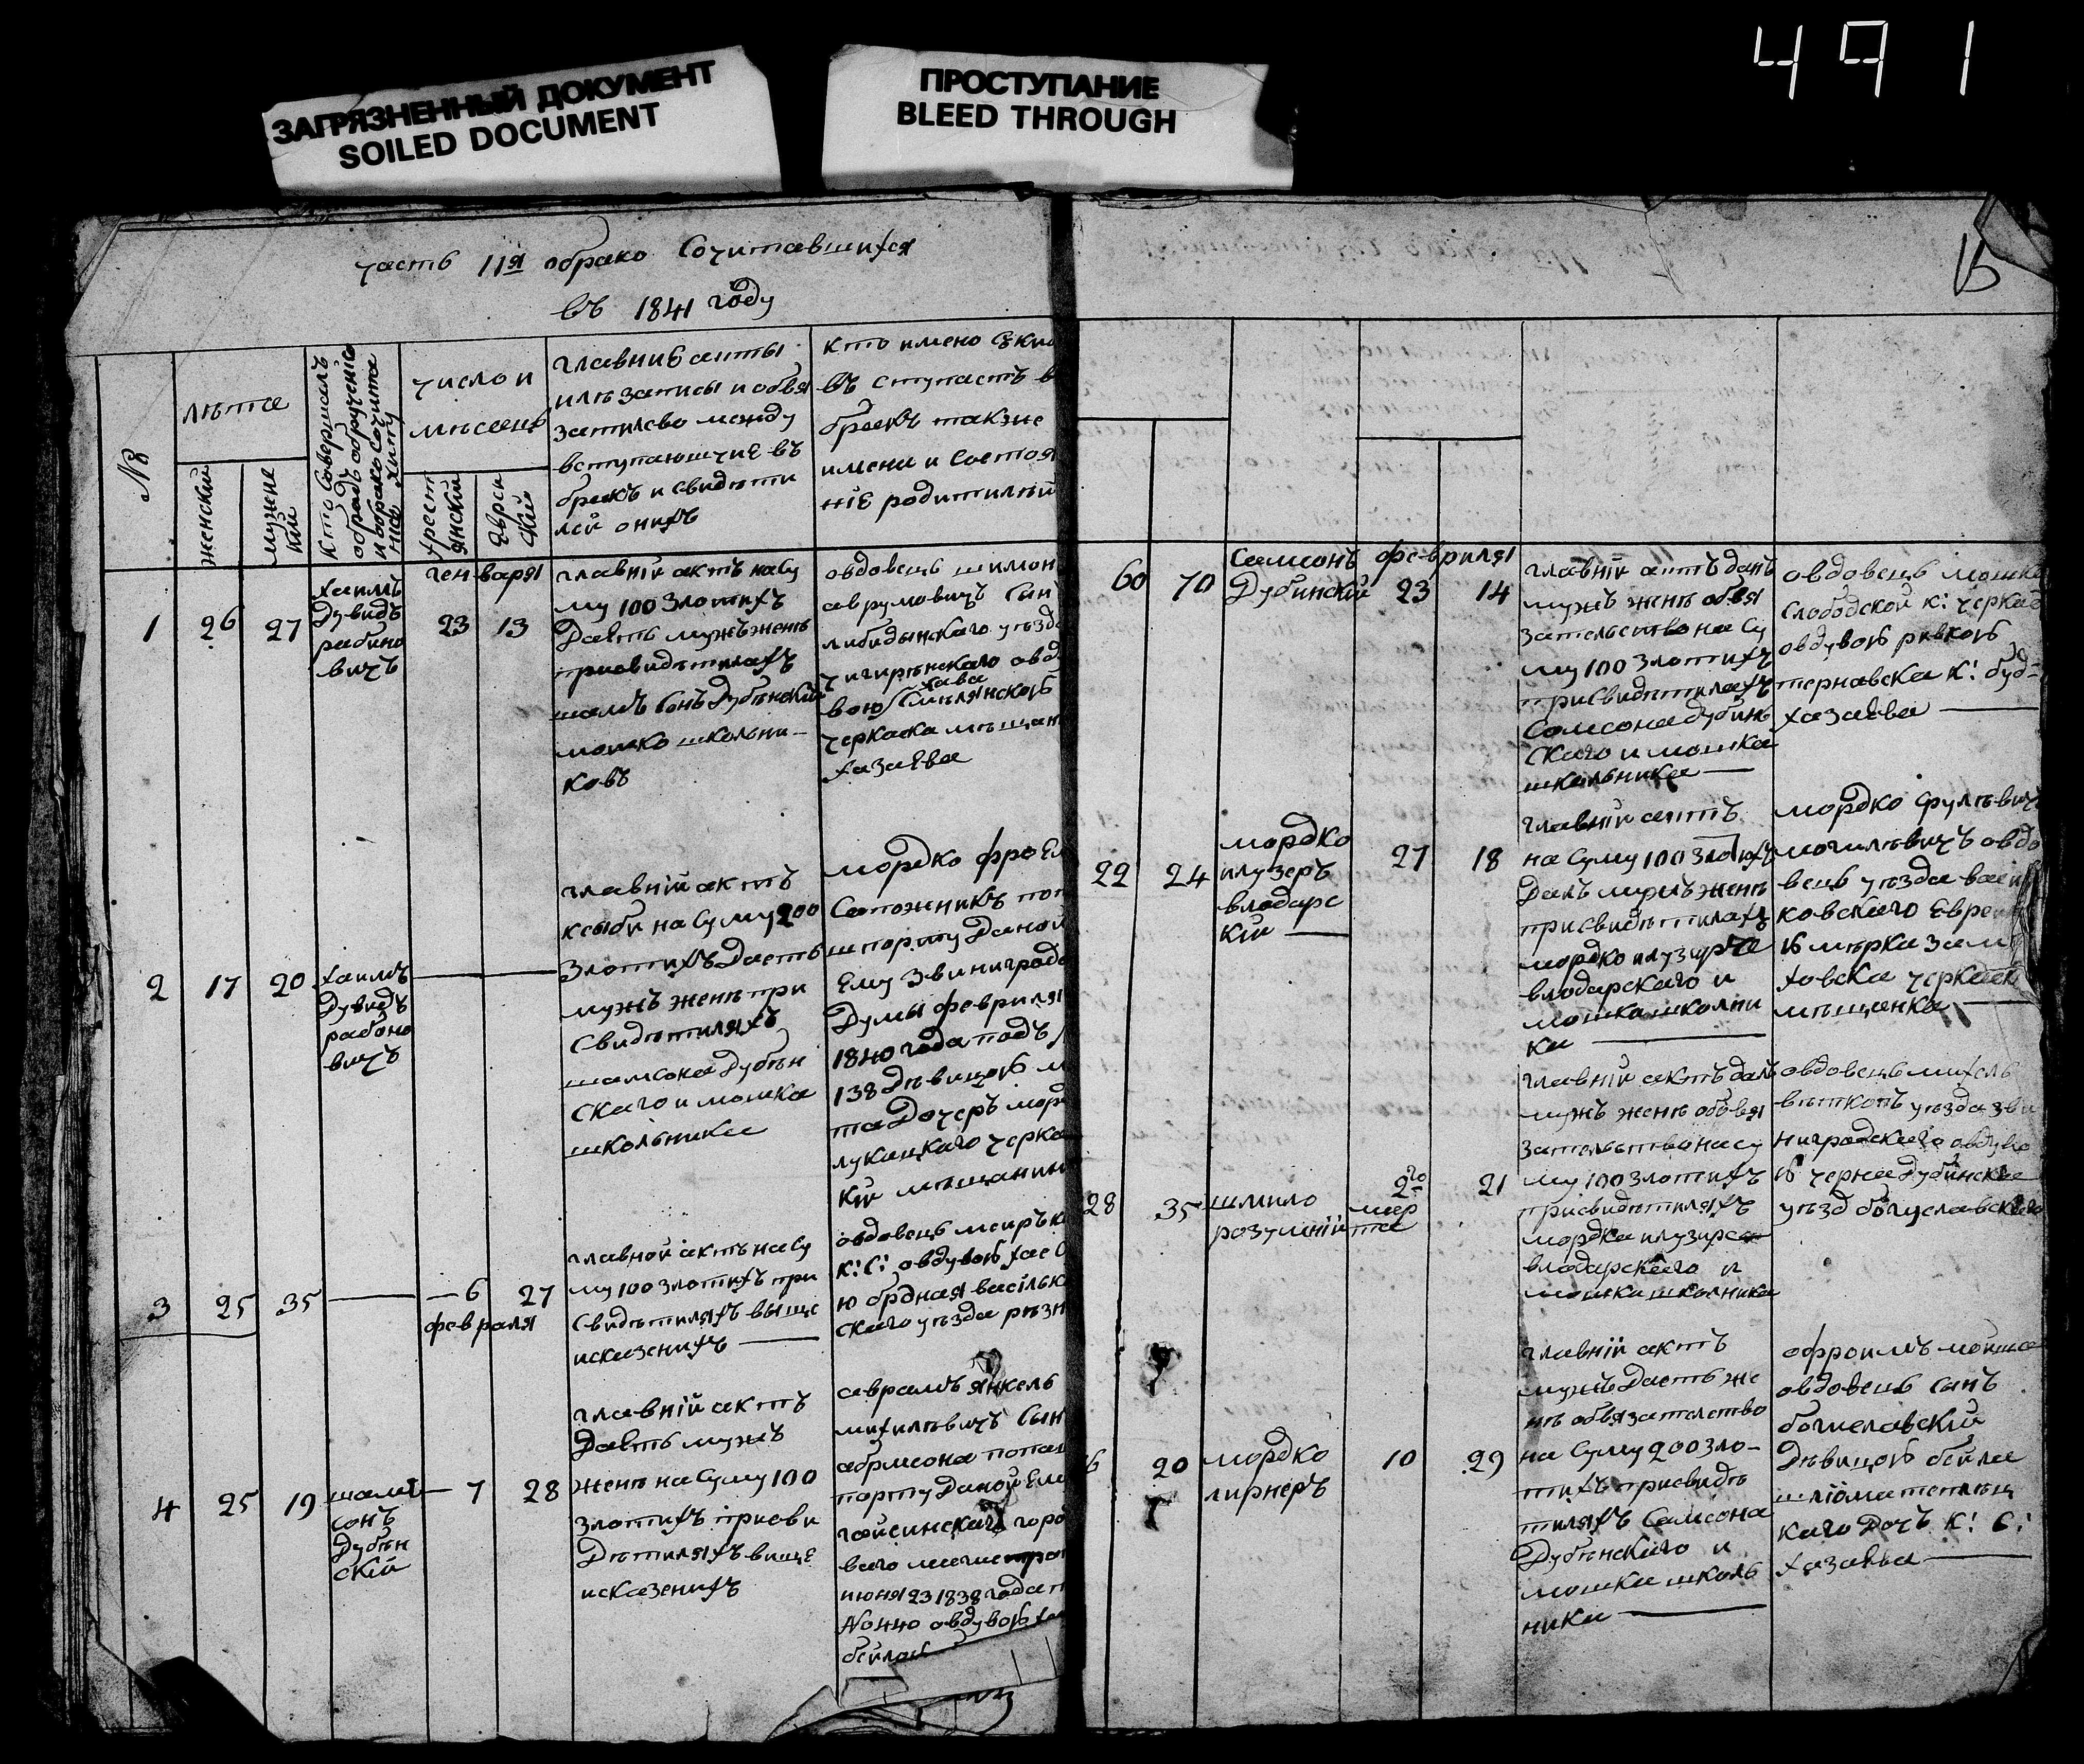 491
ЗАГРЯЗНЕННЫЙ ДОКУМЕНТ
SOILED DOCUMENT
ПРОСТУПАНИЕ
BLEED THROUGH
часть IIя обрако Сочитавшихся
въ 1841 году
№
лѣта
женский
мужеский
Кто Совершалъ
обрядъ обручения
и обрако Сочита
число и
мѣсецъ
хрест
янский
Еврей
ский
главниЕ акты
илѣ записы и обвя
зателсво между
вступающчиЕ въ
бракъ и свидѣти
лей онихъ
Кто имено
въ ступаетъ в
бракъ такжe
имени и Состоя
ніЕ родителѣй
1
26
27
хаимъ
Дувидъ
рабино
вичъ
генваря
23 13
главній актъ насу
му 100 Злотихъ
Даетъ мужъ женѣ
присвидѣтилахъ
Дубѣнский
мошко школьни-
ковъ
овдовецъ шимон
аврумовичъ Сын
уѣзда
чигирѣнскаго овд
хава
вою Смѣлянской
черкаска мѣщан
хазаЕва
2
17
20
хаимъ
Дувидъ
рабіно
вичъ
главній актъ
ксыби на Суму 200
Злотихъ Даетъ
мужъ женѣ при
Свидѣтиляхъ
шамсона Дубѣн
скаго и мошка
школьника
мордко фроЕл
Сапожникъ поп
шпорту Даной
Ему Звиниград
Думы февриля
1840 года подъ
138 Дѣвицою м
та Дочеръ мор
лукацкаго черка
кій мѣщанин
3
25
35
6 27
февраля
главной актъ на Су
му 100 Злотихъ при
Свидѣтиляхъ выще
исказенихъ
овдовецъ меиръ к
К: С: овдувою хае
васілько
скаго уѣзда рѣзн
4
25
19
шам
сонъ
Дубѣн
скій
7 28
главній актъ
Даетъ мужъ
женѣ на Суму 100
злотихъ присви
Дѣтиляхъ вище
исказенихъ
аврамъ Янкель
михилѣвичъ Сын
абрмсона попаш
порту Даной Ему
гойсинскаго горо
ваго магистра
июня 23 1838 года п
овдувою
бейлой
60
70
Самсонъ
Дубинский
февриля
23 14
главній актъ далъ
мужъ женѣ обвя
зательство на Су
му 100 Злотихъ
присвидѣтилахъ
Самсона дубин
скаго и мошка
школьника
овдовецъ мошко
Слободской к: черкас
овдувою ривкою
тернавска к: буд-
хазаЕва
22
24
мордко
илузеръ
влодарс
кій
27 18
главній актъ
на Суму 100 Злотихъ
Далъ мужъ женѣ
присвидѣтилахъ
мордко илузирa
влодарскаго и
мошка школни
ка
мордко срулѣвич
могилѣвичъ овдо
вецъ уѣзда васил
ковскаго Еврей
ю мѣрка Зам
ховска черкаск
мѣщанка
28
35
шмило
розумній
2го
мар
та
21
главній актъ далъ
мужъ женѣ обвя
зательство на Су
му 100 Злотихъ
присвидѣтиляхъ
мордка илузира
влодарскаго и
мошка школника
овдовецъ михель
вѣткопъ уѣзда зви
ниградскаго овдуво
ю черна Дубинска
уѣзд богуславскаго
6
20
мордко
лирнеръ
10 29
главній актъ
мужъ Даетъ же
нѣ обвязателство
на Суму 200 Зло-
тихъ присвидѣ
тиляхъ Самсона
Дубѣнскаго и
мошка школь
ника
афроимъ мошко
овдовецъ Сынъ
богиславский
Дѣвицою бейла
каго Дочъ К: С:
хазаЕва